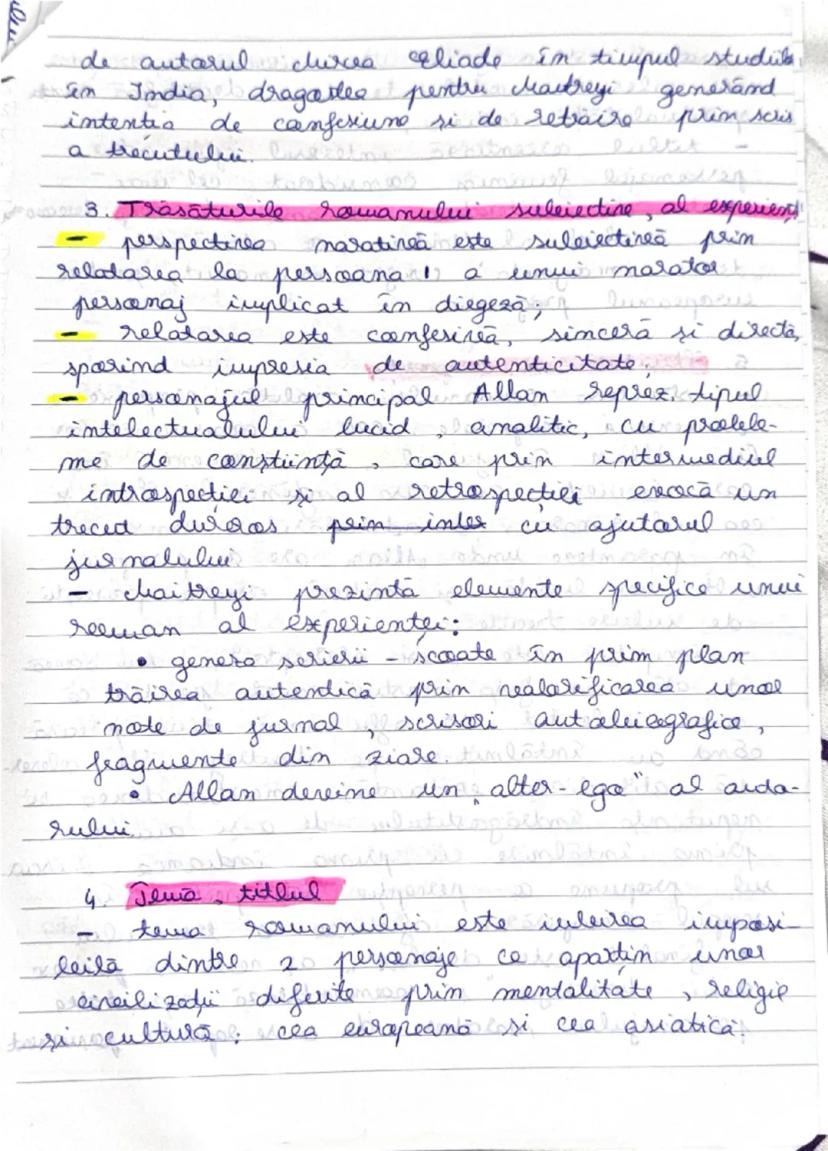 de autorul Mircea Eliade în timpul studiilor
în India, dragostea pentru Maitreyi generând
intenția de confesiune și de retrăire prin scris
a trecutului.
3. Trăsăturile romanului subiectiv, al experienț
- perspectiva narativă este subiectivă prin
relatarea la persoana I a unui narator
personaj implicat în diegeză;
- relatarea este confesivă, sinceră și directă,
sporind impresia de autenticitate;
- personajul principal Allan reprez. tipul
intelectualului lucid, analitic, cu proble-
me de conștiință, care prin intermediul
introspecției și al retrospecției evocă un
trecut dureros prin inter cu ajutorul
jurnalului
- Maitreyi prezintă elemente specifice unui
roman al experienței:
• geneza scrierii - scoate în prim plan
trăirea autentică prin valorificarea unor
note de jurnal, scrisori autobiografice,
fragmente din ziare.
• Allan devine un „alter-ego" al auto-
rului.
4. Temă, titlul
- tema romanului este iubirea imposi-
bilă dintre 2 personaje ce aparțin unor
civilizații diferite prin mentalitate, religie
și cultură: cea europeană și cea asiatică.